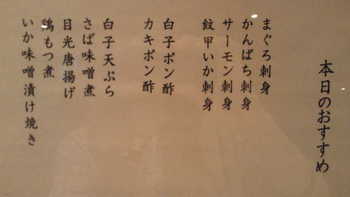 本日のおすすめ
まぐろ刺身
かんぱち刺身
サーモン刺身
紋甲いか刺身
白子ポン酢
カキポン酢
白子天ぷら
さば味噌煮
目光唐揚げ
鶏もつ煮
いか味噌漬け焼き